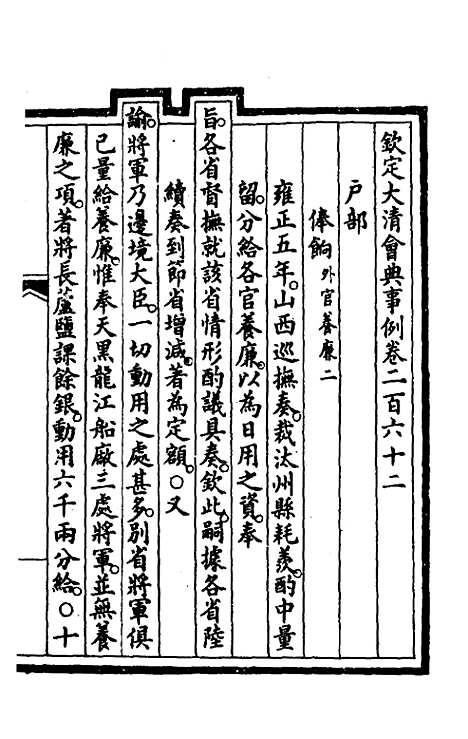 欽定大清會典事例卷二百六十二
戶部
俸餉外官養廉二
雍正五年。山西巡撫奏。裁汰州縣耗羨。酌中量
留。分給各官養廉。以為日用之資。奉
旨。各省督撫就該省情形酌議具奏。欽此。嗣據各省陸
續奏到節省增減。著為定額。○又
諭。將軍乃邊境大臣。一切動用之處甚多。別省將軍俱
已量給養廉。惟奉天黑龍江船廠三處將軍。並無養
廉之項。著將長蘆鹽課餘銀。動用六千兩分給。○十